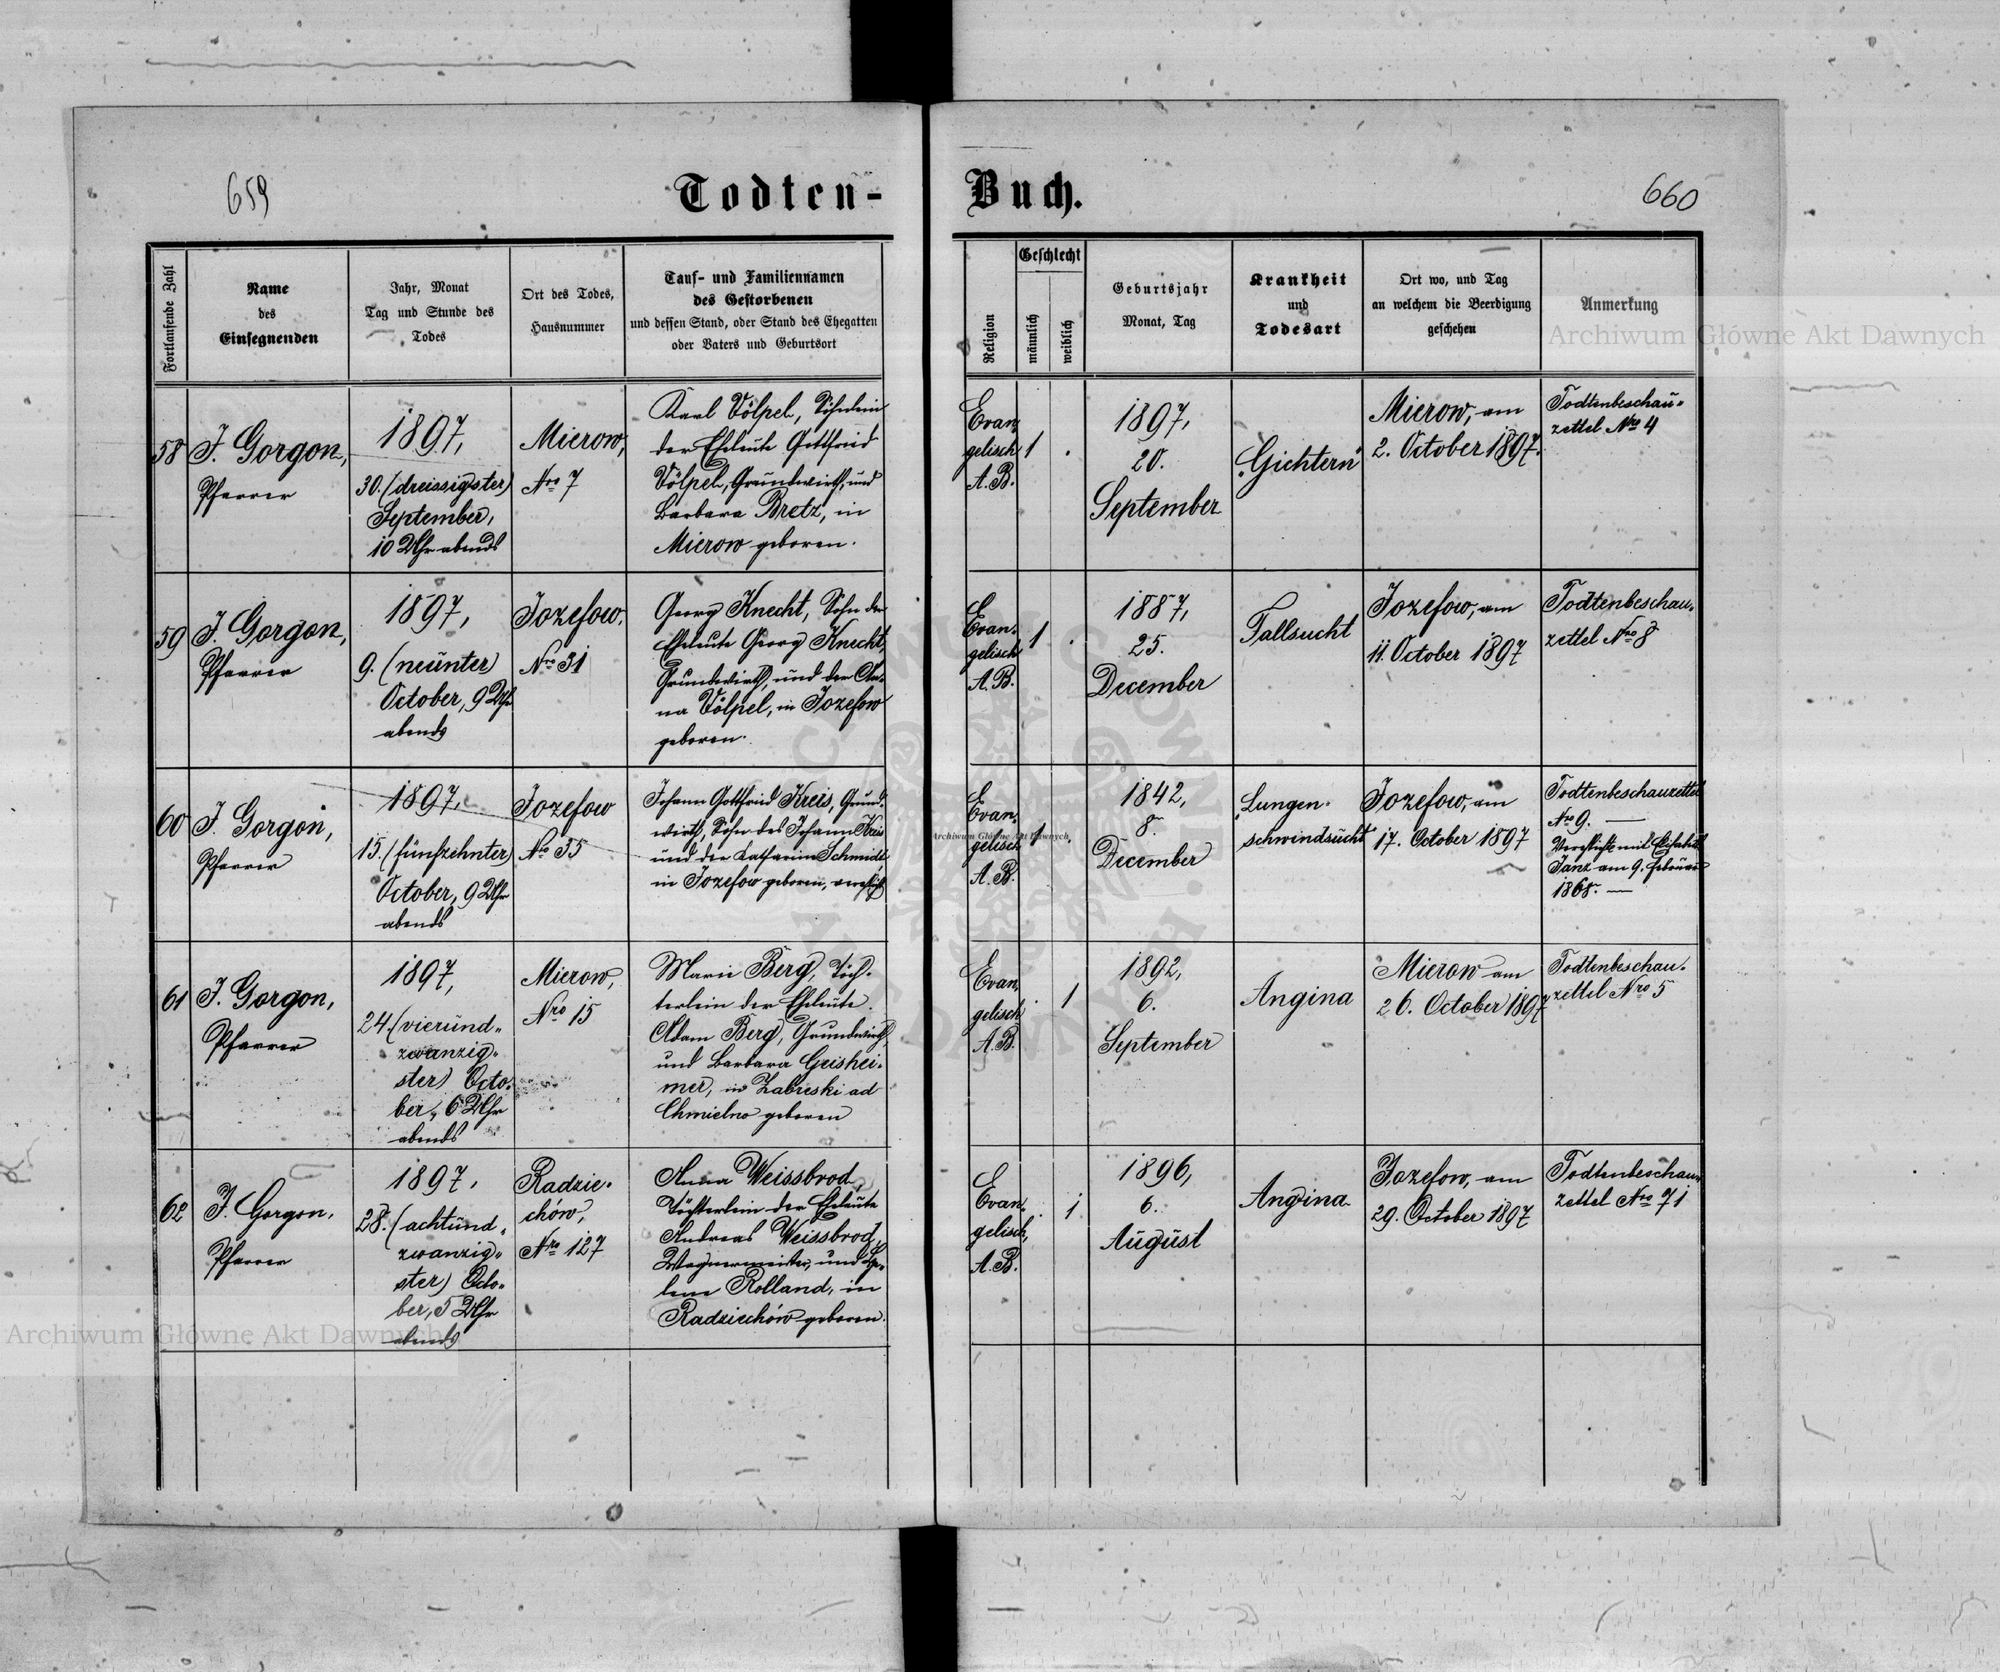 659
Todten-
Buch.
660
Fortlaufende Zahl
Name
des
Einsegnenden
Jahr, Monat
Tag und Stunde des
Todes
Ort des Todes,
Hausnummer
Tauf- und Familiennamen
des Gestorbenen
und dessen Stand, oder Stand des Ehegatten
oder Vaters und Geburtsort
Religion
Geschlecht
männlich
weiblich
Geburtsjahr
Monat, Tag
Krankheit
und
Todesart
Ort wo, und Tag
an welchem die Beerdigung
geschehen
Anmerkung
Archiwum Główne Akt Dawnych
58
J. Gorgon,
Pfarrer
1897,
30. (dreissigster)
September,
10 Uhr abends
Mierow,
Nro 7
Karl Völpel, Söhnlein
der Eheleute Gottfried
Völpel, Grundwirth, und
Barbara Bretz, in
Mierow geboren.
Evan-
gelisch
A. B.
1
.
1897,
20.
September
"Gichtern"
Mierow, am
2. October 1897.
Todtenbeschau-
zettel Nro 4
59
J. Gorgon,
Pfarrer
1897,
9. (neunter)
October, 9 Uhr
abends
Jozefow,
Nro 31
Georg Knecht, Sohn der
Eheleute Georg Knecht,
Grundwirth, und der An-
na Völpel, in Jozefow
geboren.
Evan-
gelisch
A. B.
1
.
1887,
25.
December
Fallsucht
Jozefow, am
11. October 1897
Todtenbeschau-
zettel Nro 8
60
J. Gorgon,
Pfarrer
1897,
15. (fünfzehnter)
October, 9 Uhr
abends
Jozefow
Nro 35
Johann Gottfried Kreis, Grund-
wirth, Sohn des Johann Kreis
und der Katharina Schmidt
in Jozefow geboren, verehlicht
Evan-
gelisch
A. B.
1
.
1842,
8.
December
"Lungen-
schwindsucht"
Jozefow, am
17. October 1897
Todtenbeschauzettel
Nro 9. —
Verehlicht mit Elisabeth
Janz am 9. Februar
1868. —
61
J. Gorgon,
Pfarrer
1897,
24. (vierund-
zwanzig-
ster) Octo-
ber, 6 Uhr
abends
Mierow,
Nro 15
Marie Berg, Töch-
terlein der Eheleute
Adam Berg, Grundwirth,
und Barbara Geishei-
mer, in Zabreski ad
Chmielno geboren
Evan-
gelisch
A. B.
.
1
1892,
6.
September
Angina
Mierow am
26. October 1897
Todtenbeschau-
zettel Nro 5
62
J. Gorgon,
Pfarrer
1897,
28. (achtund-
zwanzig-
ster) Octo-
ber, 5 Uhr
abends
Radzie-
chów,
Nro 127
Anna Weissbrod,
Töchterlein der Eheleute
Andreas Weissbrod,
Wagnermeister, und He-
lene Rolland, in
Radziechów geboren.
Evan-
gelisch,
A. B.
.
1
1896,
6.
August
Angina
Jozefow, am
29. October 1897
Todtenbeschau-
zettel Nro 71
Archiwum Główne Akt Dawnych
Archiwum Główne Akt Dawnych
ARCHIWUM GŁÓWNE AKT DAWNYCH